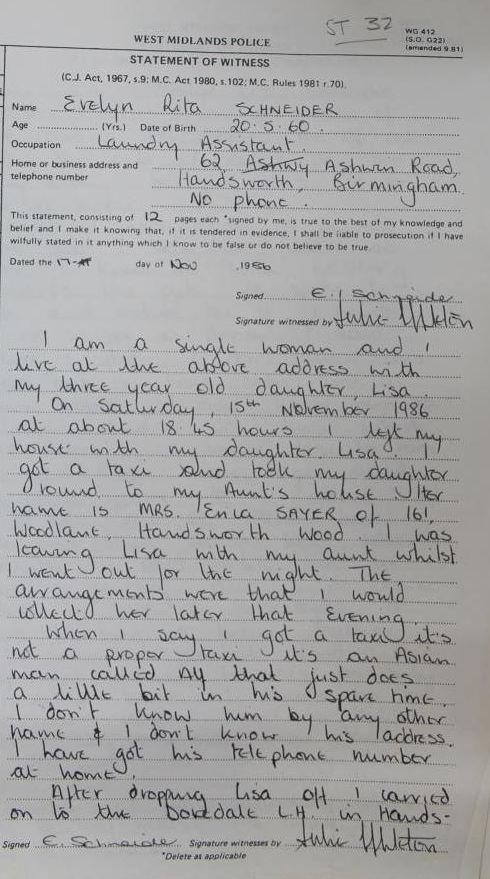 ST 32
WG 412
(S.O. G22)
(amended 9.81)
WEST MIDLANDS POLICE
STATEMENT OF WITNESS
(C.J. Act, 1967, s.9; M.C. Act 1980, s.102; M.C. Rules 1981 r.70).
Name Evelyn Rita SCHNEIDER
Age (Yrs.) Date of Birth 20.5.60.
Occupation Laundry Assistant
Home or business address and 62, Ashwin Road,
telephone number Handsworth, Birmingham
No phone.
This statement, consisting of 12 pages each *signed by me, is true to the best of my knowledge and
belief and I make it knowing that, if it is tendered in evidence, I shall be liable to prosecution if I have
wilfully stated in it anything which I know to be false or do not believe to be true.
Dated the day of Nov ,1986
Signed E. Schneider
Signature witnessed by
I am a single woman and I
live at the above address with
my three year old daughter, Lisa.
On Saturday, 15th November 1986
at about 18 45 hours I left my
house with my daughter Lisa. I
got a taxi and took my daughter
round to my Aunt's house. Her
name is MRS. SAYER of 161,
Woodlane, Handsworth Wood. I was
leaving Lisa with my aunt whilst
I went out for the night. The
arrangements were that I would
collect her later that evening.
When I say I got a taxi it's
not a proper taxi it's an Asian
man called that just does
a little bit in his spare time.
I don't know him by any other
name & I don't know his address.
I have got his telephone number
at home.
After dropping Lisa off I carried
on to the L.H. in Hands-
Signed E. Schneider Signature witnesses by
*Delete as applicable